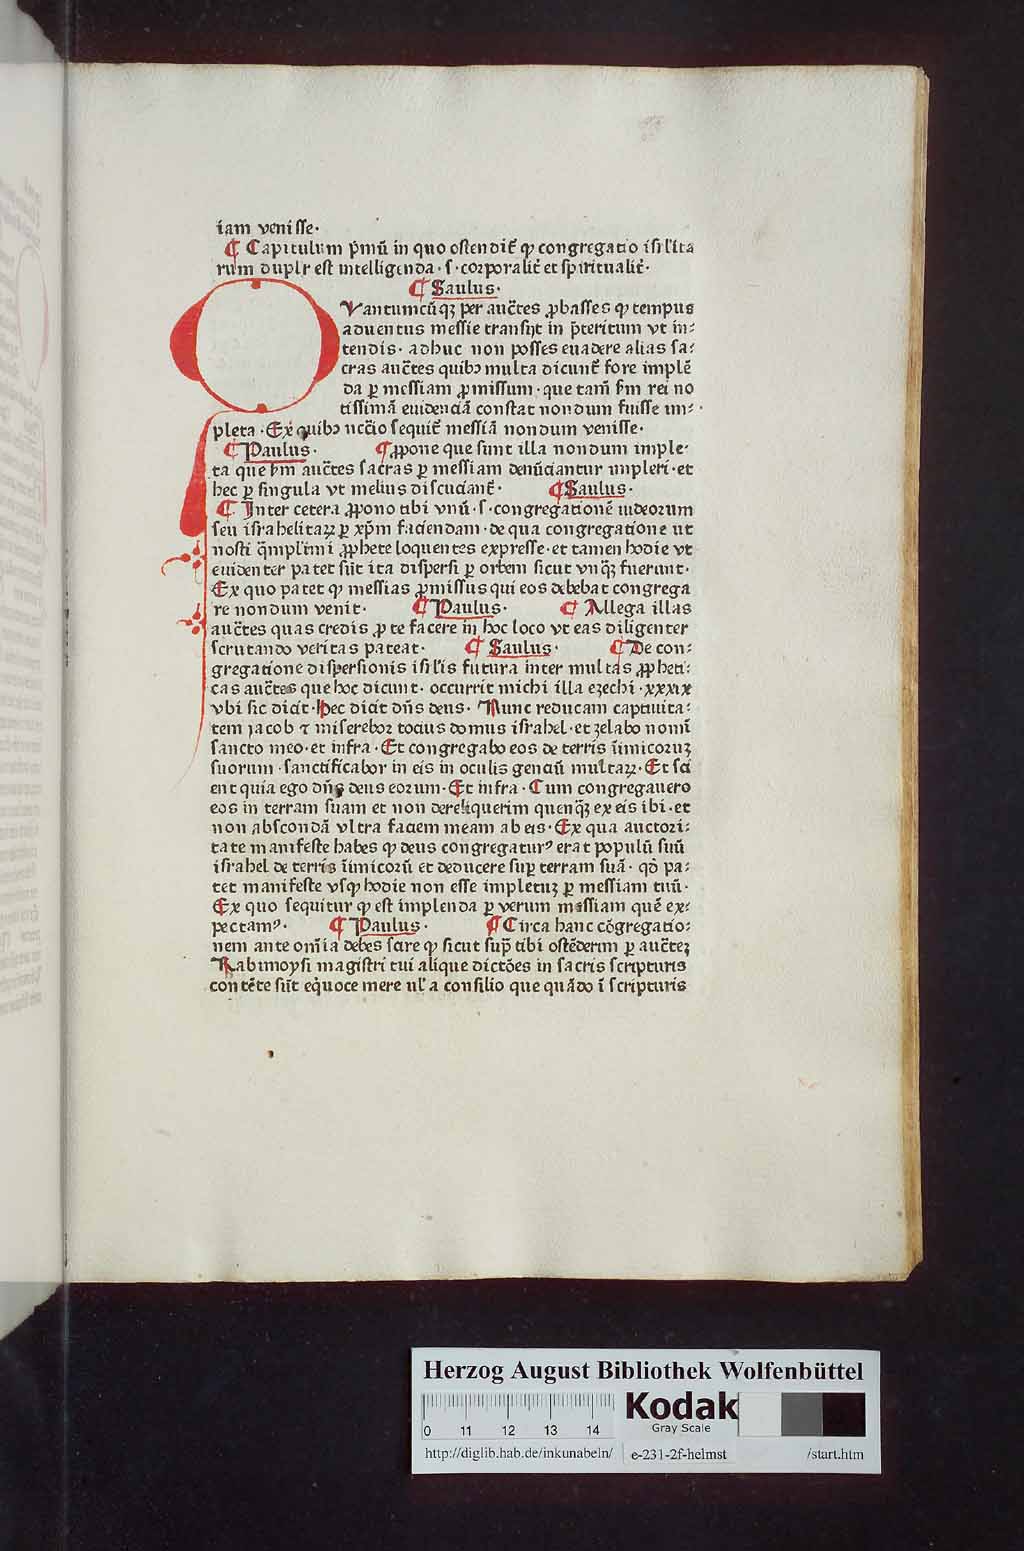 iam venisse·
¶ Capitulum p̄mū in quo ostendit᷑ ꝙ congregatio isrl'ita
rum duplr est intelligenda · s · corporalit᷑ et spiritualit᷑·
¶ Saulus·
Q Vantumcūqꝫ per auc̄tes ꝓbasses ꝙ tempus
aduentus messie transijt in p̄teritum vt in⸗
tendis · adhuc non posses euadere alias sa⸗
cras auc̄tes quibꝰ multa dicunt᷑ fore implē
da ꝑ messiam ꝓmissum · que tam̄ ẜm rei no
tissimā euidenciā constat nondum fuisse im⸗
pleta · Ex quibꝰ nc̄cio sequit᷑ messiā nondum venisse·
¶ Paulus· ¶ ꝓpone que sunt illa nondum imple⸗
ta que ẜm auc̄tes sacras ꝑ messiam denūciantur impleri · et
hec ꝑ singula vt melius discuciant᷑· ¶ Saulus·
¶ Inter cetera ꝓpono tibi vnū · s · congregationē iudeorum
seu israhelitaꝝ ꝑ xp̄m faciendam · de qua congregatione ut
nosti q̄mplr̄imi ꝓphete loquentes expresse · et tamen hodie vt
euidenter patet sūt ita dispersi ꝑ orbem sicut vnqꝫ fuerunt·
Ex quo patet ꝙ messias ꝓmissus qui eos debebat congrega
re nondum venit· ¶ Paulus· ¶ Allega illas
auc̄tes quas credis ꝓ te facere in hoc loco vt eas diligenter
scrutando veritas pateat· ¶ Saulus· ¶ De con⸗
gregatione dispersionis isrl'is futura inter multas ꝓpheti⸗
cas auc̄tes que hoc dicunt · occurrit michi illa ezechi · xxxix
vbi sic dicit · Hec dicit dn̄s deus · Nunc reducam captiuita⸗
tem jacob ⁊ miserebor tocius domus israhel · et zelabo nomī
sancto meo · et infra · Et congregabo eos de terris īimicoruꝫ
suorum · sanctificabor in eis in oculis genciū multaꝝ · Et sci
ent quia ego dn̄s deus eorum · Et infra · Cum congregauero
eos in terram suam et non dereliquerim quenqꝫ ex eis ibi · et
non abscondā vltra faciem meam ab eis · Ex qua auctori⸗
tate manifeste habes ꝙ deus congregaturꝰ erat populū suū
israhel de terris īimicorū et deducere suꝑ terram suā · qd̄ pa⸗
tet manifeste vsqꝫ hodie non esse impletuꝫ ꝑ messiam tuū·
Ex quo sequitur ꝙ est implenda ꝑ verum messiam quē ex⸗
pectamꝰ· ¶ Paulus· ¶ Circa hanc cōgregatio⸗
nem ante om̄ia debes scire ꝙ sicut sup̄ tibi ostēderim ꝑ auc̄teꝫ
Rabimoysi magistri tui alique dictōes in sacris scripturis
contēte sūt eq̄uoce mere ul' a consilio que quādo ī scripturis
Herzog August Bibliothek Wolfenbüttel
0 11 12 13 14
Kodak
Gray Scale
http://diglib.hab.de/inkunabeln/ e-231-2f-helmst /start.htm